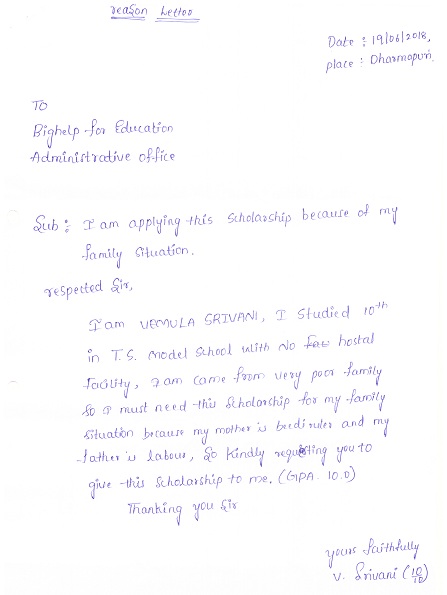 reason Lettoo
Date : 19/06/2018,
place : Dharmapuri.
To
Bighelp for Education
Administrative office
Sub : I am applying this Scholarship because of my
family Situation.
respected Sir,
I am VEMULA SRIVANI, I Studied 10th
in T.S. model School with No hostal
facility, I am came from very poor family
So I must need this Scholarship for my family
Situation because my mother is beedi ruler and my
father is labour, So kindly requesting you to
give this Scholarship to me. (GPA. 10.0)
Thanking you Sir
yours faithfully
V. Srivani (10/10)